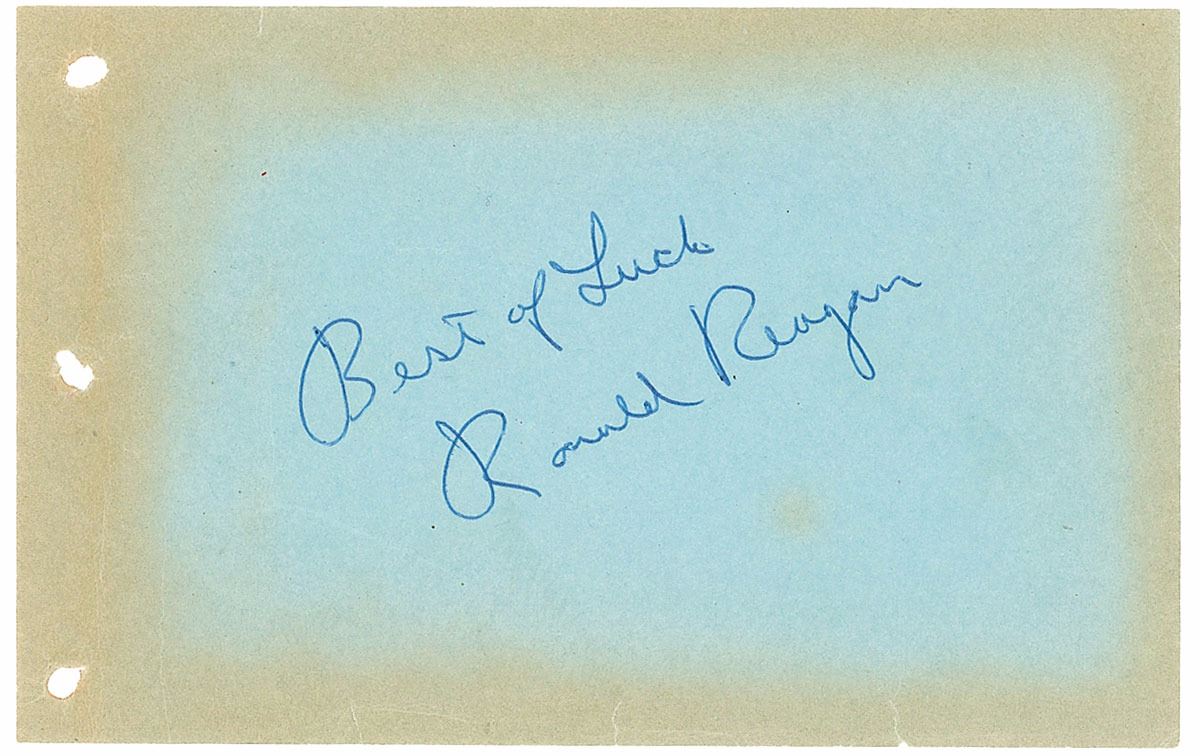 Best of Luck
Ronald Reagan